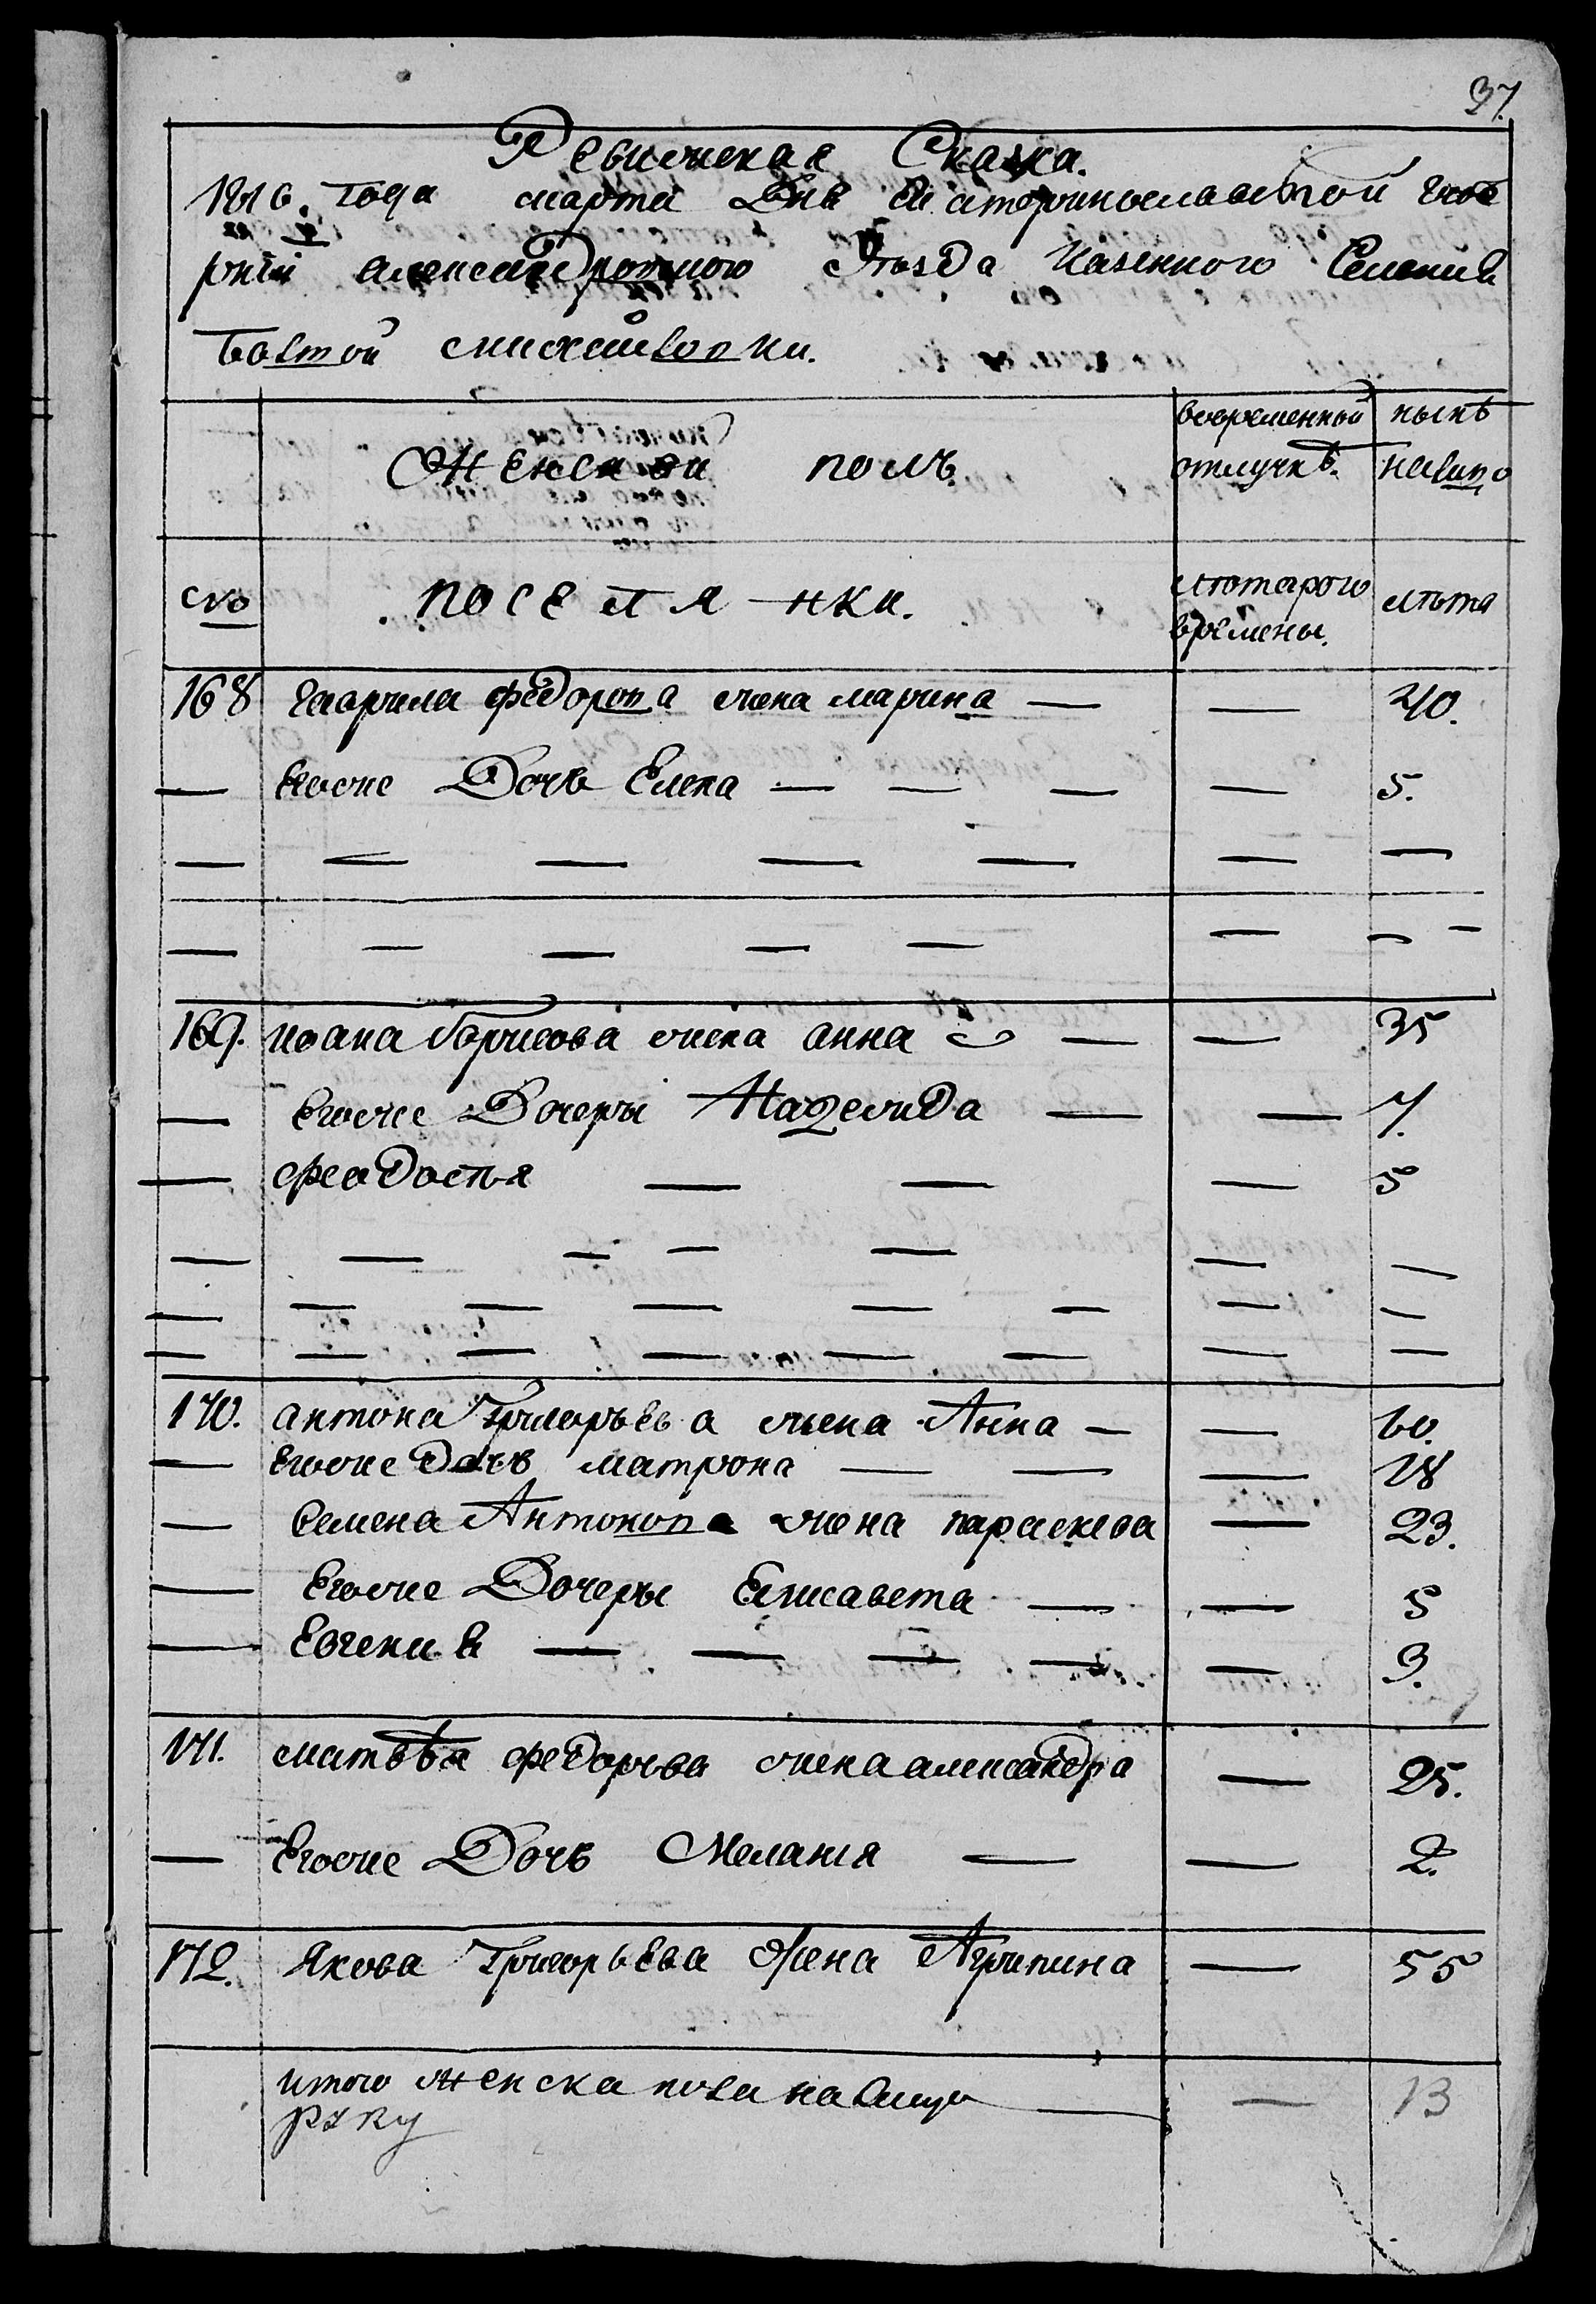 37.
Ревижская Сказка.
1816. года марта Дня Екатеринославской губе
рнїи александровского Уѣзда Казенного Селения
Болшой михайловки.
Женской полъ.
вовременной отлучкѣ.
нынѣ налицо
№
поселянки.
скотораго времены.
лѣта
168 гаврила федорова жена марина — — 40.
— Егоже Дочь Елена — — — — 5.
— — — — — — —
— — — — — — — —
169. иоана борисова жена анна — — 35
— Егоже Дочеры Надежда — — 7.
— феодосья — — — 5
— — — — — — —
— — — — — — — —
— — — — — — — —
170. антона Григорьева жена Анна — — 60.
— Егоже дочь матрона — — — 18
— Семена Антонова жена параскева — 23.
— Егоже Дочеры Елисавета — — 5
— Евгения — — — — — 3.
171. матвѣя федорова жена александра — 25.
— Егоже Дочь Мелания — — 2.
172. Якова Григорьева Жена Агрипина — 55
итого женска пола налицо — — 13